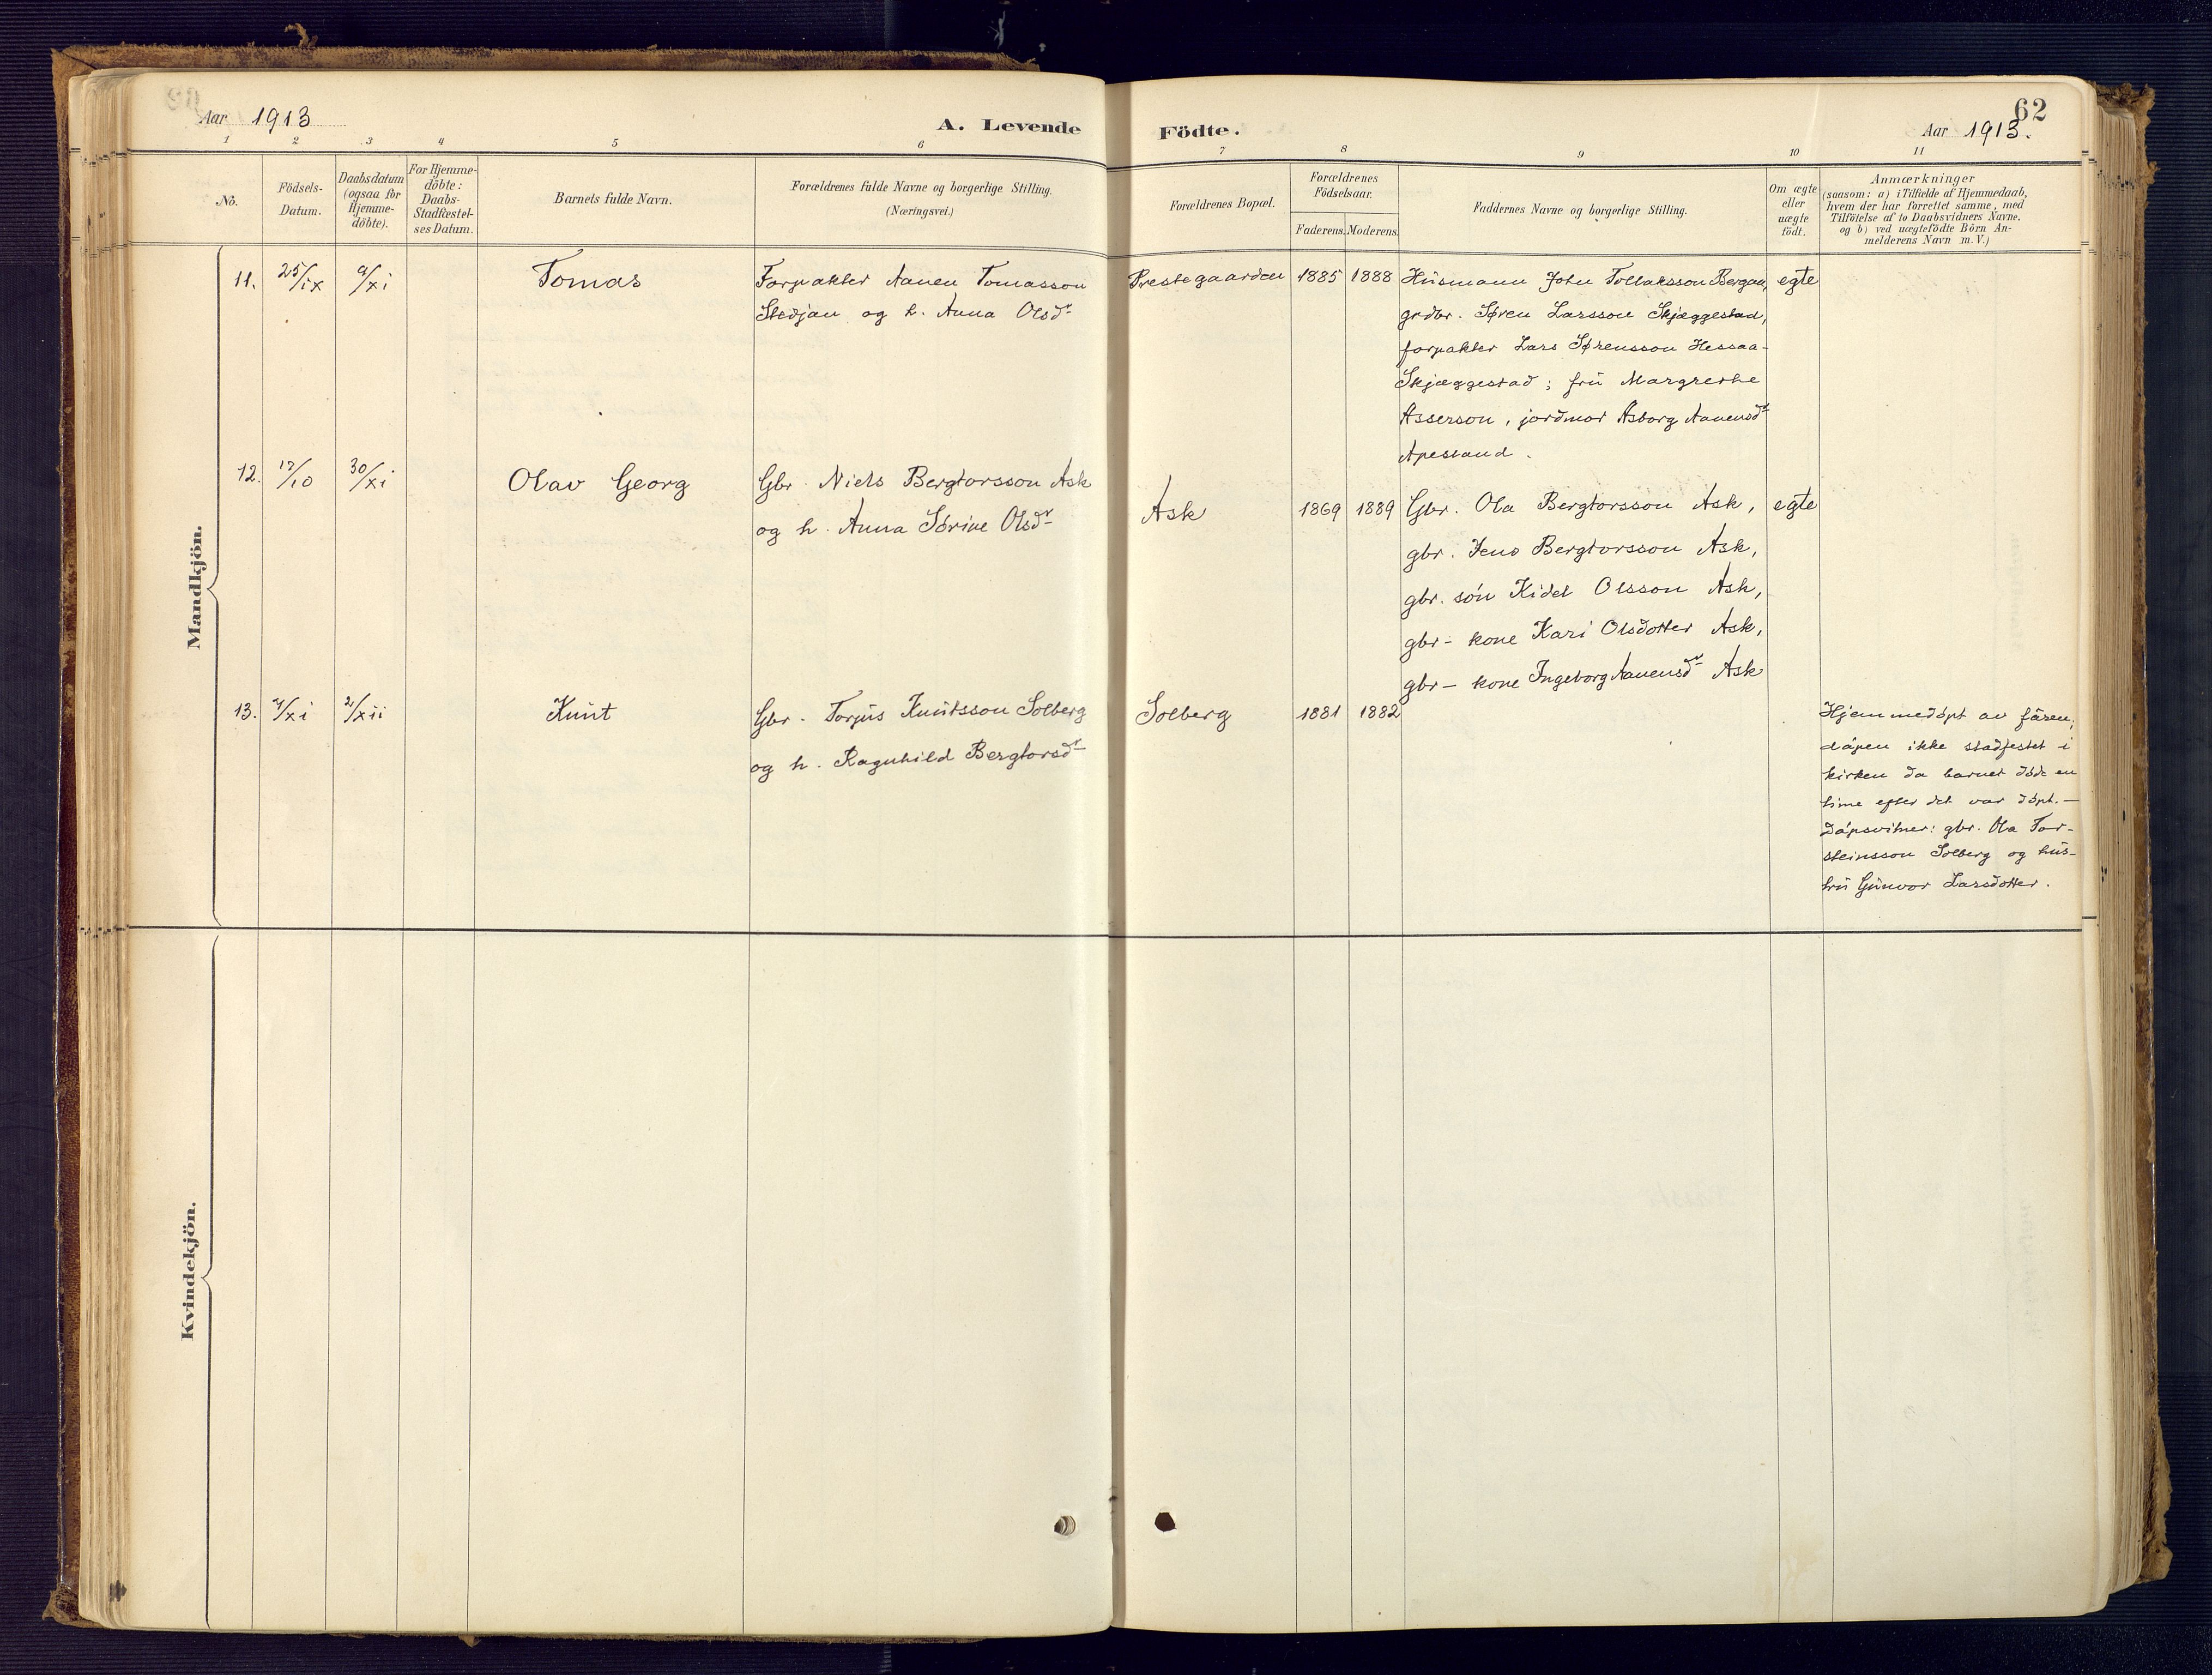 62
Aar 1913
A. Levende Födte.
Aar 1913.
1 2 3 4 5 6 7 8 9 10 11
No.
Födsels-
Datum.
Daabsdatum
(ogsaa for
Hjemme-
döbte).
For Hjemme-
döbte:
Daabs-
Stadfæstel-
ses Datum.
Barnets fulde Navn.
Forældrenes fulde Navne og borgerlige Stilling.
(Næringsvei.)
Forældrenes Bopæl.
Forældrenes
Födselsaar.
Faderens. Moderens.
Faddernes Navne og borgerlige Stilling.
Om ægte
eller
uægte
födt.
Anmærkninger
(saasom: a) i Tilfælde af Hjemmedaab,
hvem der har forrettet samme, med
Tilföielse af to Daabsvidners Navne.
og b) ved uægtefödte Börn An-
melderens Navn m. V.)
Mandkjön.
11. 25/ix 9/xi Tomas
Forpakter Aanen Tomasson
Stedjan og h. Anna Olsdr
Prestegaarden 1885 1888
Husmann John Tollaksson Bergaa,
grdbr. Søren Larsson Skjæggestad,
forpakter Lars Sørensson Hessaa-
Skjæggestad; fru Margrethe
Asserson, jordmor Åsborg Aanensdr
Apestand.
egte
12. 17/10 30/xi Olav Georg
Gbr. Niels Bergtorsson Ask
og h. Anna Sörine Olsdr
Ask 1869 1889
Gbr. Ola Bergtorsson Ask,
gbr. Jens Bergtorsson Ask,
gbr. sön Kidel Olsson Ask,
gbr- kone Kari Olsdotter Ask,
gbr- kone Ingeborg Aanensdr Ask
egte
13. 7/xi 2/xii Knut
Gbr. Torjus Knutsson Solberg
og h. Ragnhild Bergtorsdr
Solberg 1881 1882
Hjemmedöpt av faren;
dåpen ikke stadfestet i
kirken da barnet döde en
time efter det var döpt. —
Dåpsvitner: gbr. Ola Tor-
steinsson Solberg og hus-
tru Gunvor Larsdotter.
Kvindekjön.